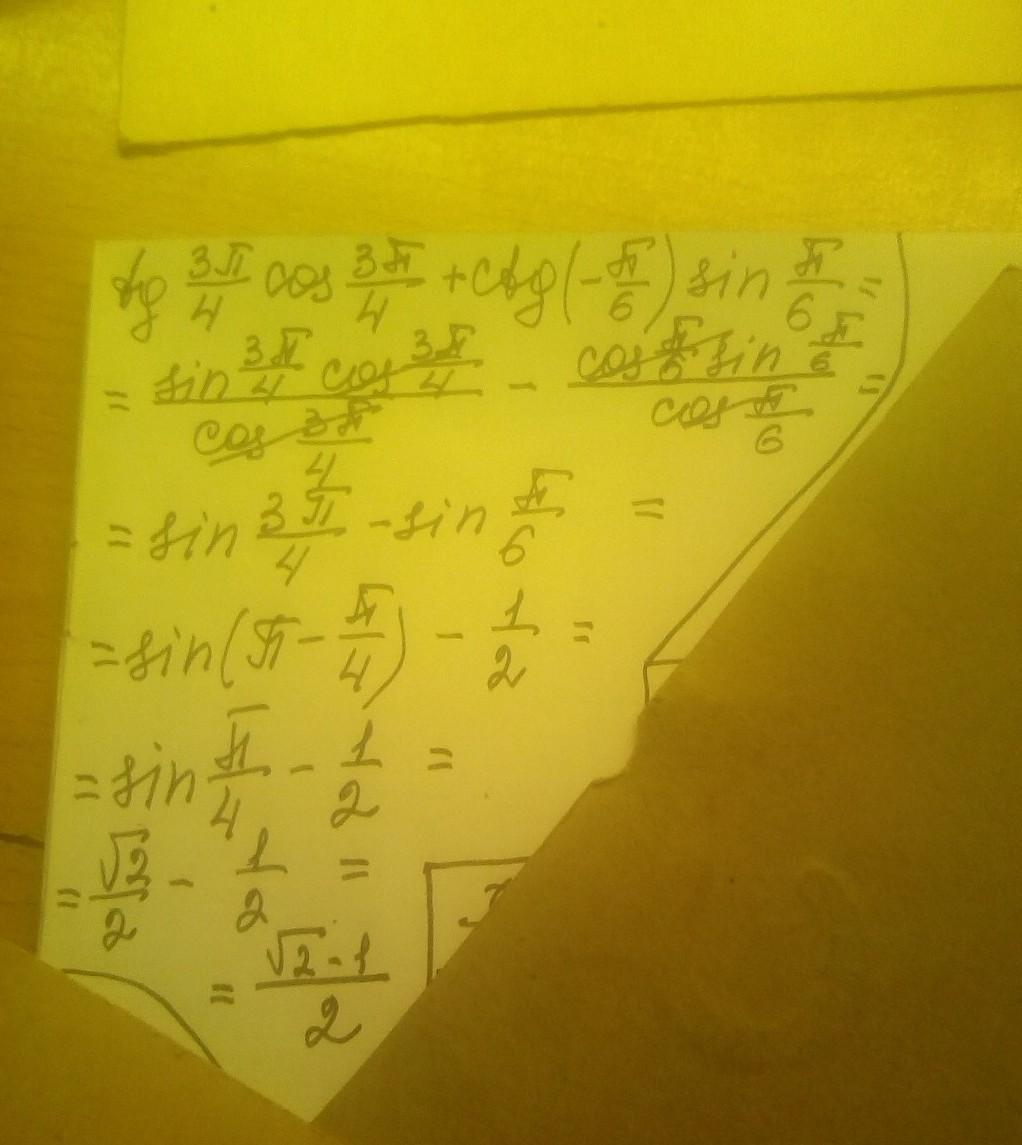 tg 3π/4 cos 3π/4 + ctg(-π/6) sin π/6 =
= sin 3π/4 cos 3π/4 / cos 3π/4 - cos π/6 sin π/6 / cos π/6 =
= sin 3π/4 - sin π/6 =
= sin(π - π/4) - 1/2 =
= sin π/4 - 1/2 =
= √2/2 - 1/2 =
= √2-1/2